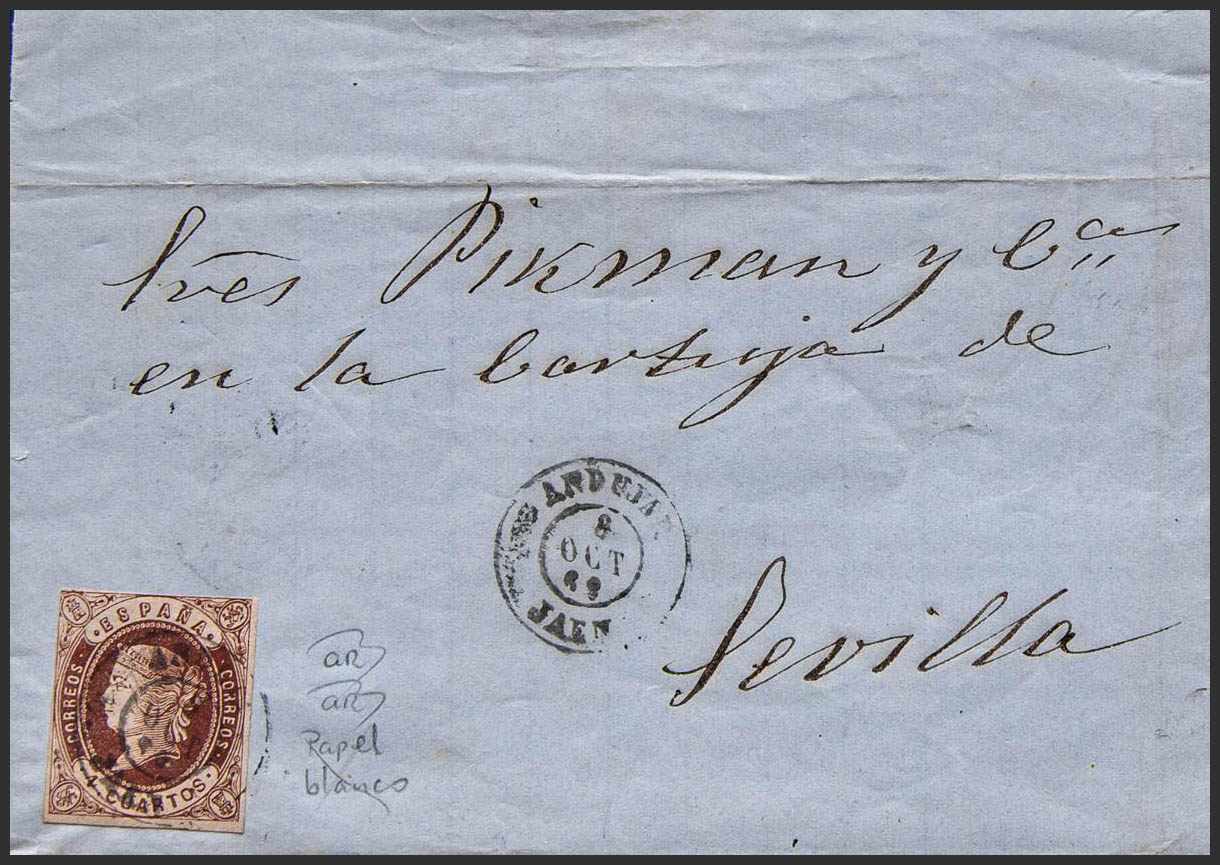 Sres Pikman y Cª
en la Cartuja de
ANDUJAR
8
OCT
62
JAEN
Sevilla
ESPAÑA
CORREOS
CORREOS
4 CUARTOS
Papel
blanco